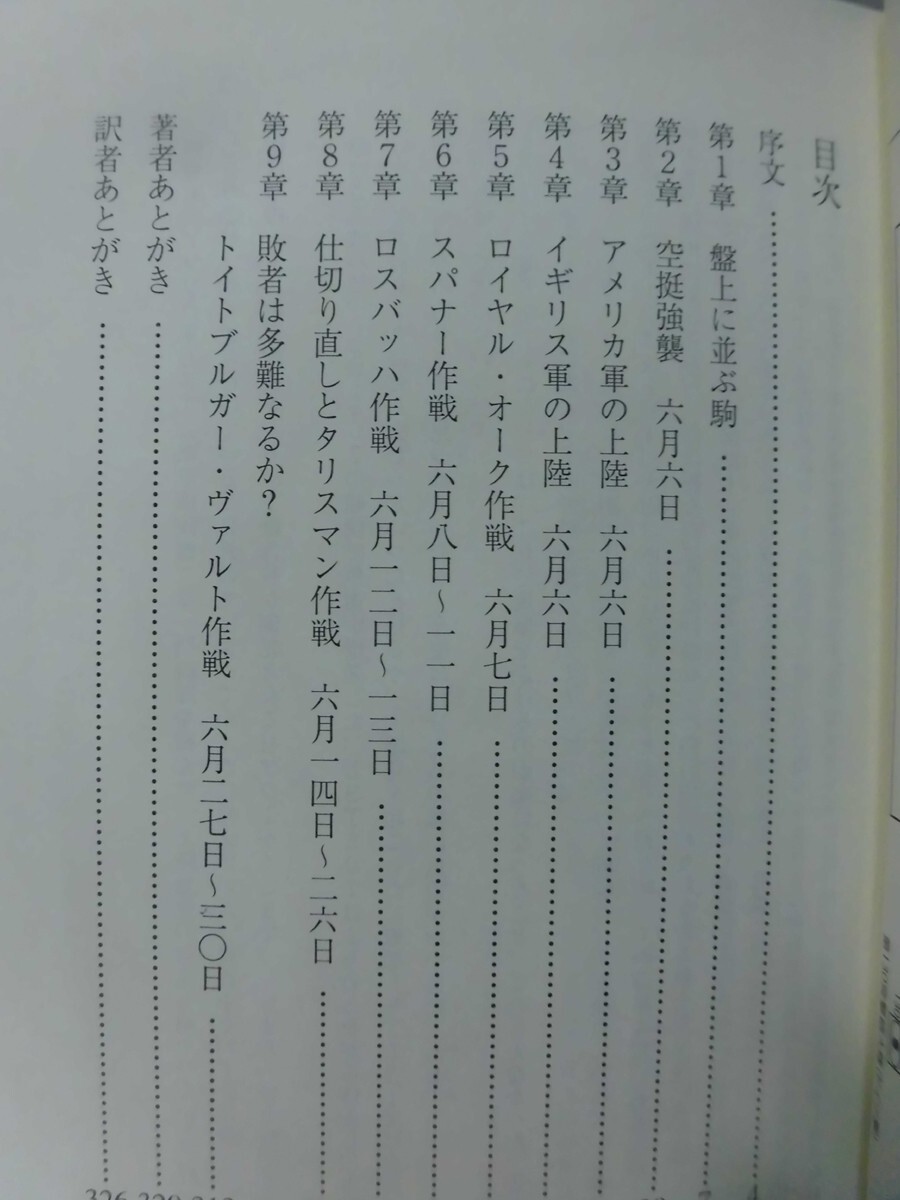 目次
序文
第1章 盤上に並ぶ駒
第2章 空挺強襲 六月六日
第3章 アメリカ軍の上陸 六月六日
第4章 イギリス軍の上陸 六月六日
第5章 ロイヤル・オーク作戦 六月七日
第6章 スパナー作戦 六月八日〜一一日
第7章 ロスバッハ作戦 六月一二日〜一三日
第8章 仕切り直しとタリスマン作戦 六月一四日〜二六日
第9章 敗者は多難なるか?
トイトブルガー・ヴァルト作戦 六月二七日〜三〇日
著者あとがき
訳者あとがき